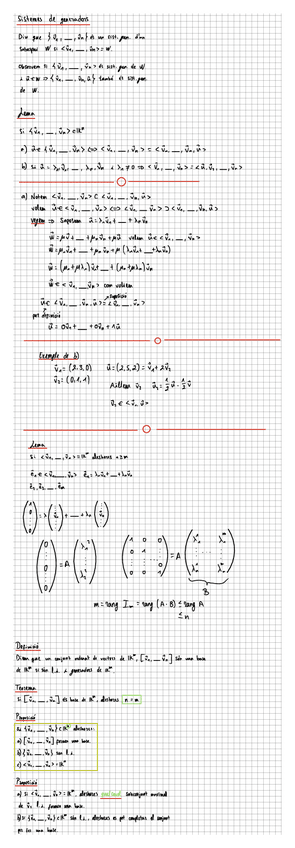 Sistemes de generadors
Diu que {v⃗₁, __, v⃗ₙ} és un sist. gen. d'un
subespai W si <v⃗₁, __, v⃗ₙ> = W.
Observem si {v⃗₁, __, v⃗ₙ} és sist. gen. de W
i u⃗ ∈ W ⇒ {v⃗₁, __, v⃗ₙ, u⃗} també és sist. gen.
de W.
Lema
Si {v⃗₁, __, v⃗ₙ} ⊂ ℝᵐ
a) u⃗ ∈ <v⃗₁, __, v⃗ₙ> ⇔ <v⃗₁, __, v⃗ₙ> = <v⃗₁, __, v⃗ₙ, u⃗>
b) Si u⃗ = λ₁v⃗₁, __, λₙv⃗ₙ i λ₁ ≠ 0 ⇒ <v⃗₁, __, v⃗ₙ> = <u⃗, v⃗₂, __, v⃗ₙ>
a) Notem <v⃗₁, __, v⃗ₙ> ⊂ <v⃗₁, __, v⃗ₙ, u⃗>
volem u⃗ ∈ <v⃗₁, __, v⃗ₙ> ⇔ <v⃗₁, __, v⃗ₙ> ⊃ <v⃗₁, __, v⃗ₙ, u⃗>
⇒ Suposem u⃗ = λ₁v⃗₁ + __ + λₙv⃗ₙ
w⃗ = μ₁v⃗₁ + __ + μₙv⃗ₙ + μu⃗ volem w⃗ ∈ <v⃗₁, __, v⃗ₙ>
w⃗ = μ₁v⃗₁ + __ + μₙv⃗ₙ + μ(λ₁v⃗₁ + __ + λₙv⃗ₙ)
w⃗ = (μ₁ + μλ₁)v⃗₁ + __ + (μₙ + μλₙ)v⃗ₙ
w⃗ ∈ <v⃗₁, __, v⃗ₙ> com volíem
u⃗ ∈ <v⃗₁, __, v⃗ₙ, u⃗> = <v⃗₁, __, v⃗ₙ>
per definició
u⃗ = 0v⃗₁ + __ + 0v⃗ₙ + 1u⃗
Exemple de b)
v⃗₁ = (2,3,0) u⃗ = (2,5,2) = v⃗₁ + 2v⃗₂
v⃗₂ = (0,1,1) Aïllem v⃗₂ v⃗₂ = 1/2 u⃗ - 1/2 v⃗
v⃗₂ ∈ <v⃗₁, u⃗>
Lema
Si <v⃗₁, __, v⃗ₙ> = ℝᵐ aleshores n ≥ m
e⃗₁ ∈ <v⃗₁, __, v⃗ₙ> e⃗₁ = λ₁v⃗₁ + __ + λₙv⃗ₙ
e⃗₁, e⃗₂, __ e⃗ₘ
m = rang Iₘ = rang (A · B) ≤ rang A
≤ n
Definició
Diem que un conjunt ordenat de vectors de ℝᵐ, [v⃗₁, __, v⃗ₙ] són una base
de ℝᵐ si són l.i. i generadors de ℝᵐ.
Teorema
Si [v⃗₁, __, v⃗ₙ] és base de ℝᵐ, aleshores n = m
Proposició
Si {v⃗₁, __, v⃗ₙ} ⊂ ℝⁿ aleshores:
a) [v⃗₁, __, v⃗ₙ] formen una base.
b) {v⃗₁, __, v⃗ₙ} són l.i.
c) <v⃗₁, __, v⃗ₙ> = ℝⁿ
Proposició
a) Si <v⃗₁, __, v⃗ₙ> = ℝᵐ, aleshores subconjunt maximal
de v⃗ᵢ l.i. formen una base.
b) Si {v⃗₁, __, v⃗ₙ} ⊂ ℝᵐ són l.i., aleshores es pot completar el conjunt
per fer una base.